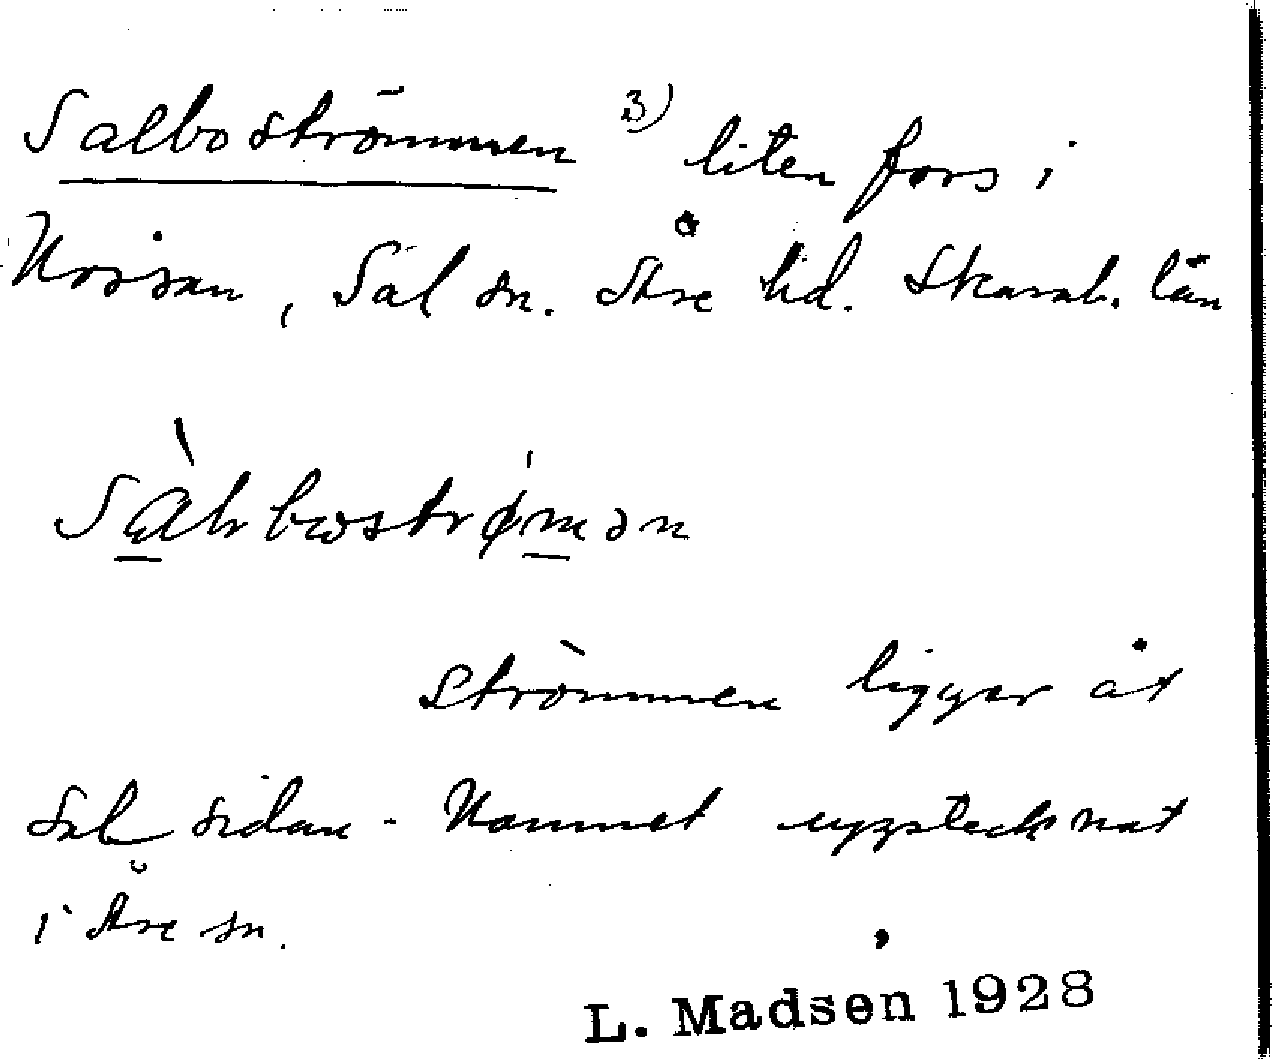 Salboströmmen 3) liten fors i
Nossan, Sal sn. Åse hd. Skarab. län
Sàlrbωstrø̀mən
Strömmen ligger åt
Sal sidan - Namnet upptecknat
i Åse sn.
L. Madsen 1928